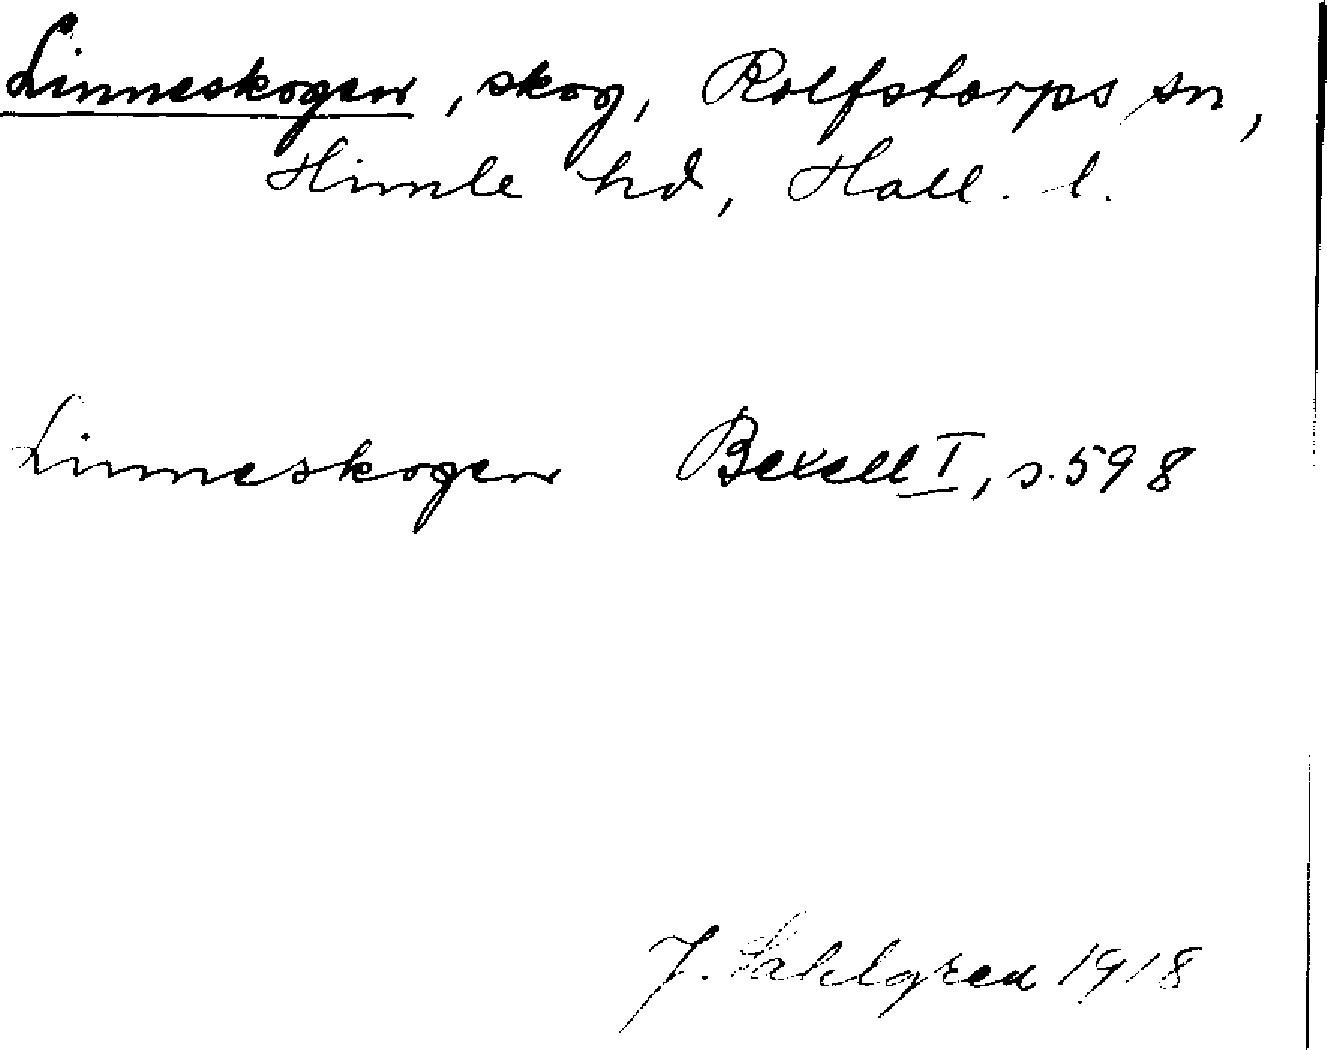 Linneskogen, skog, Rolfstorps sn,
Himle hd, Hall. l.
Linneskogen Bexell I, s. 598
J. Sahlgren 1918